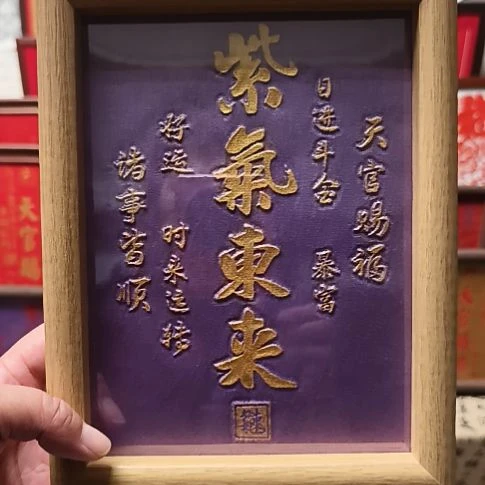 天官赐福
日进斗金 暴富
紫氣東来
好运 时来运转
诸事皆顺
天官赐